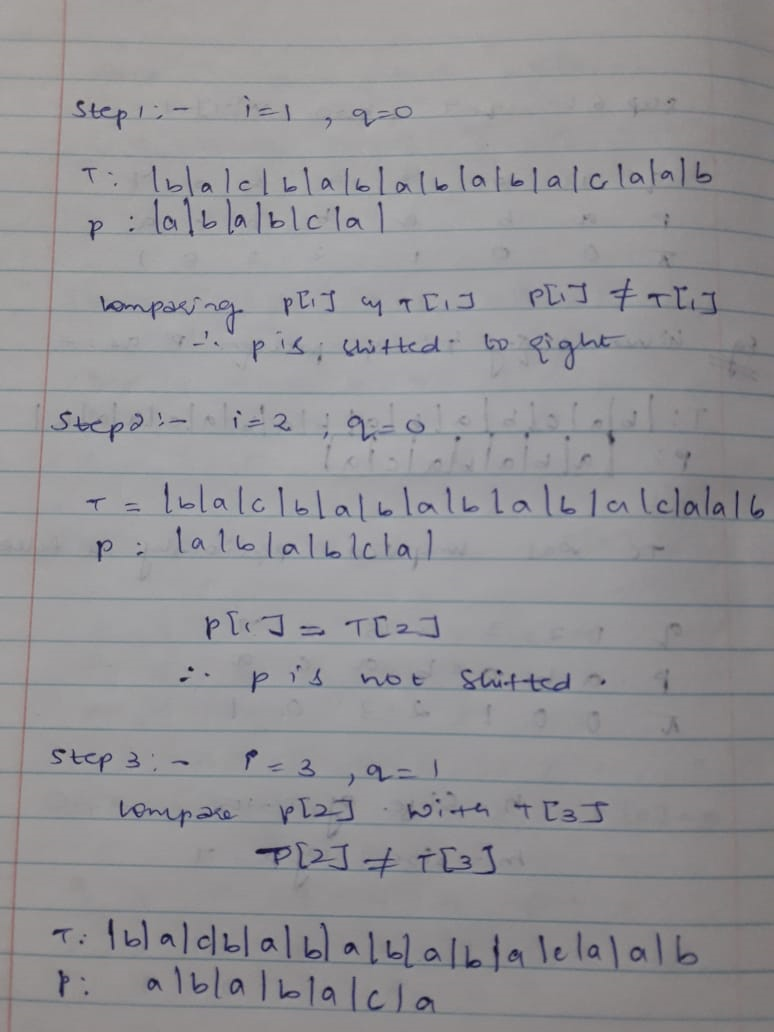 Step 1:- i=1, q=0
T: |b|a|c|b|a|b|a|b|a|b|a|c|a|a|b
p: |a|b|a|b|c|a|
Comparing p[1] T[1] p[1] ≠ T[1]
∴ p is shifted to right
Step 2:- i=2, q=0
T = |b|a|c|b|a|b|a|b|a|b|a|c|a|a|b
p: |a|b|a|b|c|a|
p[1] = T[2]
∴ p is not shifted.
Step 3:- i=3, q=1
Compare p[2] with T[3]
P[2] ≠ T[3]
T: |b|a|c|b|a|b|a|b|a|b|a|c|a|a|b
P: a|b|a|b|a|c|a